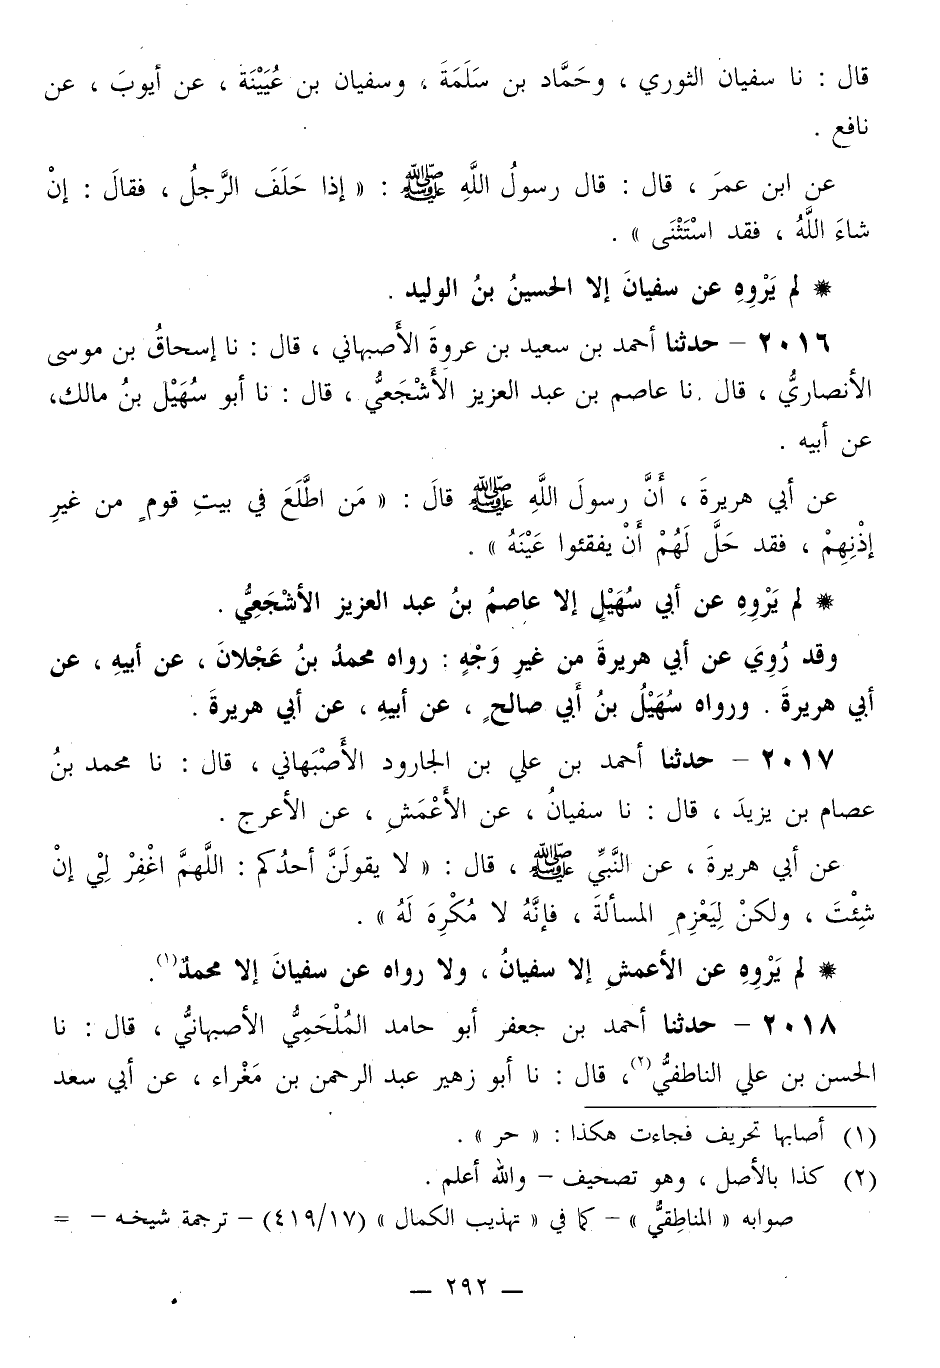 قال : نا سفيان الثوري ، وحَمَّاد بن سَلَمَةَ ، وسفيان بن عُيَيْنَة ، عن أيوبَ ، عن
نافع .
عن ابن عمرَ ، قال : قال رسولُ اللَّهِ ﷺ : « إذا حَلَفَ الرَّجلُ ، فقالَ : إنْ
شاءَ اللَّهُ ، فقد اسْتَثْنَى » .
* لم يَرْوِهِ عن سفيانَ إلا الحسينُ بنُ الوليد .
٢٠١٦ – حدثنا أحمد بن سعيد بن عروةَ الأَصبهاني ، قال : نا إسحاقُ بن موسى
الأنصاريُّ ، قال : نا عاصم بن عبد العزيز الأَشْجَعيُّ ، قال : نا أبو سُهَيْل بنُ مالك،
عن أبيه .
عن أبي هريرةَ ، أَنَّ رسولَ اللَّهِ ﷺ قالَ : « مَن اطَّلَعَ في بيتِ قومٍ من غيرِ
إذْنِهِمْ ، فقد حَلَّ لَهُمْ أَنْ يفقئوا عَيْنَهُ » .
* لم يَرْوِهِ عن أبي سُهَيْلٍ إلا عاصمُ بنُ عبد العزيز الأشْجَعِيُّ .
وقد رُوِيَ عن أبي هريرةَ من غيرِ وَجْهٍ : رواه محمدُ بنُ عَجْلانَ ، عن أبيهِ ، عن
أبي هريرةَ . ورواه سُهَيْلُ بنُ أَبي صالحٍ ، عن أبيهِ ، عن أبي هريرةَ .
٢٠١٧ – حدثنا أحمد بن علي بن الجارود الأَصْبَهاني ، قال : نا محمد بنُ
عصام بن يزيدَ ، قال : نا سفيانُ ، عن الأَعْمَشِ ، عن الأعرج .
عن أبي هريرةَ ، عن النَّبيِّ ﷺ ، قال : « لا يقولَنَّ أحدُكم : اللَّهمَّ اغْفِرْ لِيْ إنْ
شِئْتَ ، ولكنْ لِيَعْزِمِ المسألةَ ، فإنَّهُ لا مُكْرِهَ لَهُ » .
* لم يَرْوِهِ عن الأعمشِ إلا سفيانُ ، ولا رواه عن سفيانَ إلا محمدٌ(١).
٢٠١٨ – حدثنا أحمد بن جعفر أبو حامد المُلْحَمِيُّ الأصبهانيُّ ، قال : نا
الحسن بن علي الناطفيُّ(٢)، قال : نا أبو زهير عبد الرحمن بن مَغْراء ، عن أبي سعد
(١) أصابها تحريف فجاءت هكذا : « حر » .
(٢) كذا بالأصل ، وهو تصحيف – والله أعلم .
صوابه « المناطِقيُّ » – كما في « تهذيب الكمال » (٤١٩/١٧) – ترجمة شيخه – =
— ٢٩٢ —